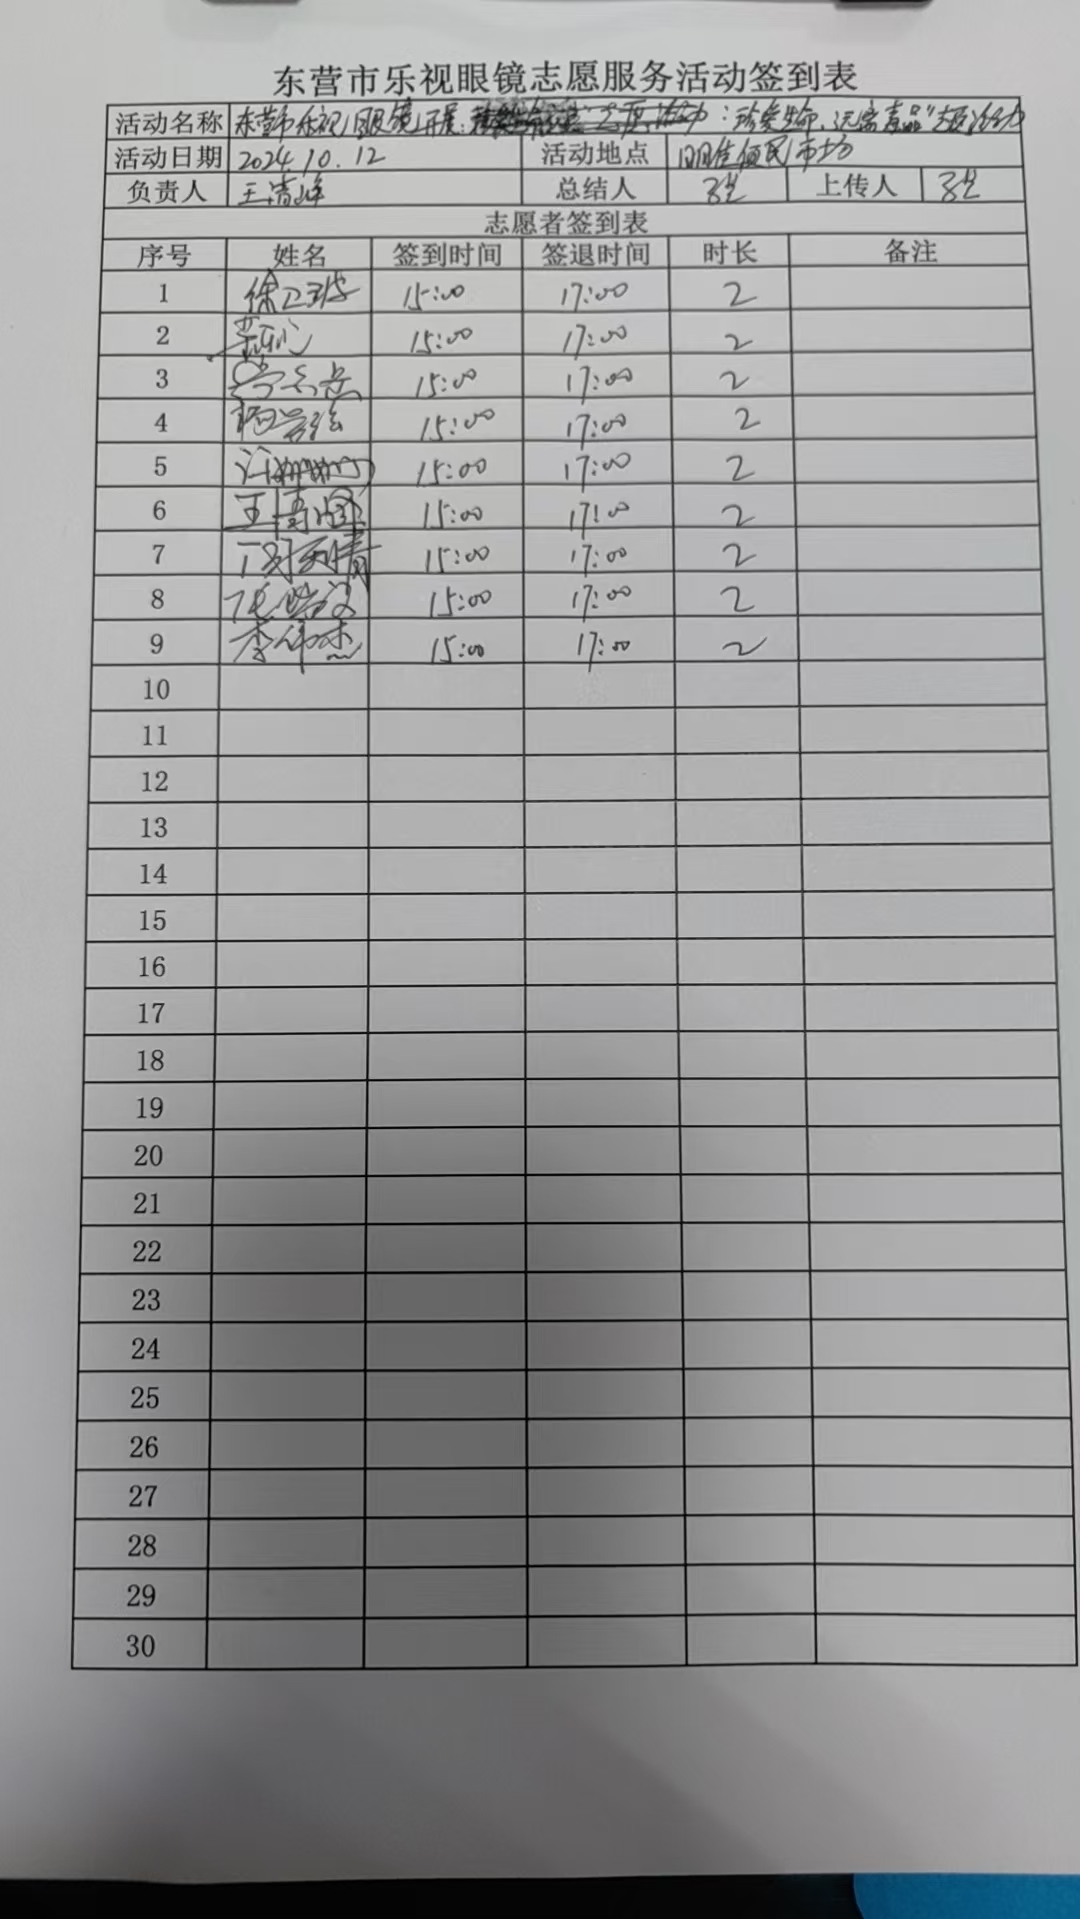 东营市乐视眼镜志愿服务活动签到表
活动名称 东营市乐视眼镜开展 志愿活动:珍爱生命、远离毒品"志愿活动
活动日期 2024.10.12 活动地点 明佳便民市场
负责人 王清峰 总结人 上传人
志愿者签到表
序号 姓名 签到时间 签退时间 时长 备注
1 徐卫玻 15:00 17:00 2
2 15:00 17:00 2
3 15:00 17:00 2
4 15:00 17:00 2
5 15:00 17:00 2
6 王 15:00 17:00 2
7 15:00 17:00 2
8 15:00 17:00 2
9 李伟杰 15:00 17:00 2
10
11
12
13
14
15
16
17
18
19
20
21
22
23
24
25
26
27
28
29
30